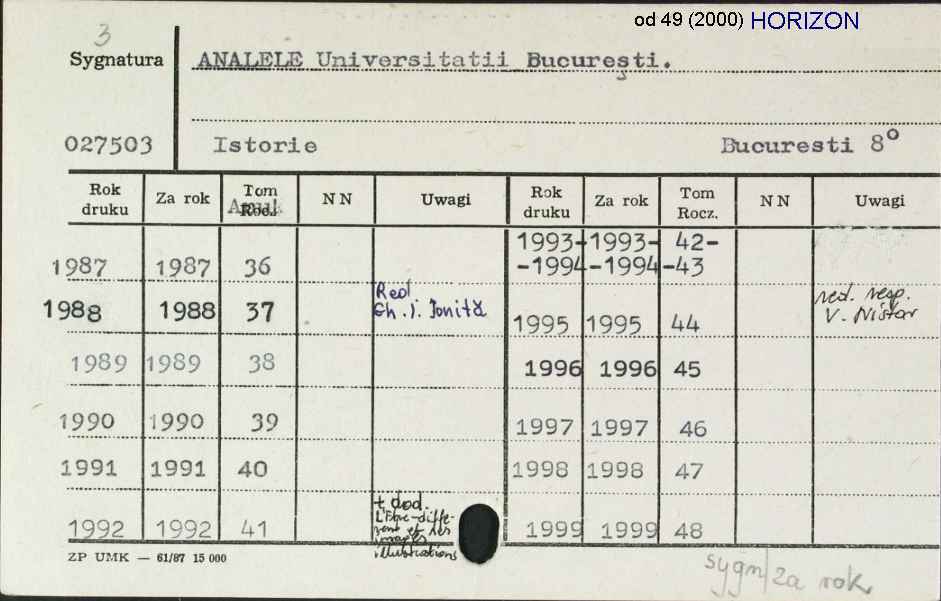 od 49 (2000) HORIZON
3
Sygnatura ANALELE Universitatii Bucureşti.
027503 Istorie Bucuresti 8°
Rok druku Za rok Tom Rocz. NN Uwagi Rok druku Za rok Tom Rocz. NN Uwagi
1987 1987 36 1993- -1994 1993- -1994 42- -43
1988 1988 37 Red. Gh. I. Ioniţă 1995 1995 44 red. resp. V. Nistor
1989 1989 38 1996 1996 45
1990 1990 39 1997 1997 46
1991 1991 40 1998 1998 47
1992 1992 41 + dod. images illustrations 1999 1999 48
ZP UMK — 61/87 15 000
sygn/za rok